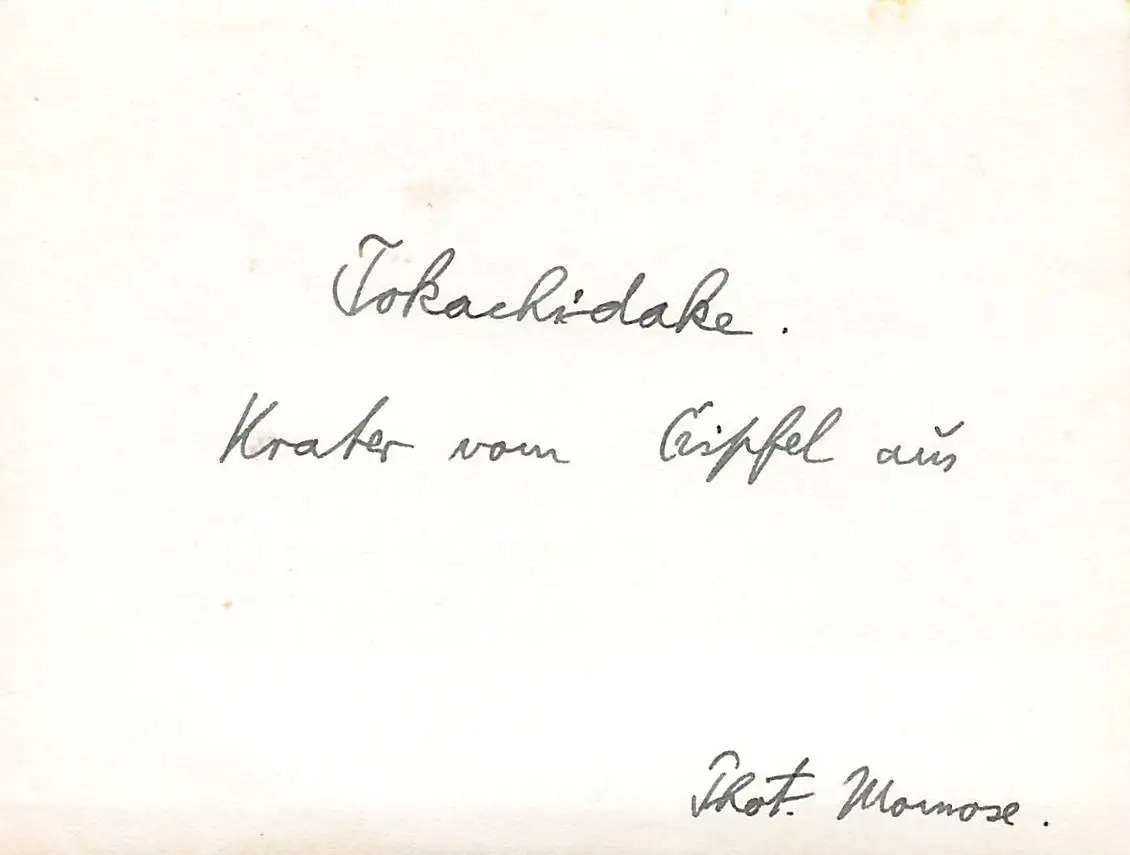 Tokachidake.
Krater vom Gipfel aus
Phot. Momose.